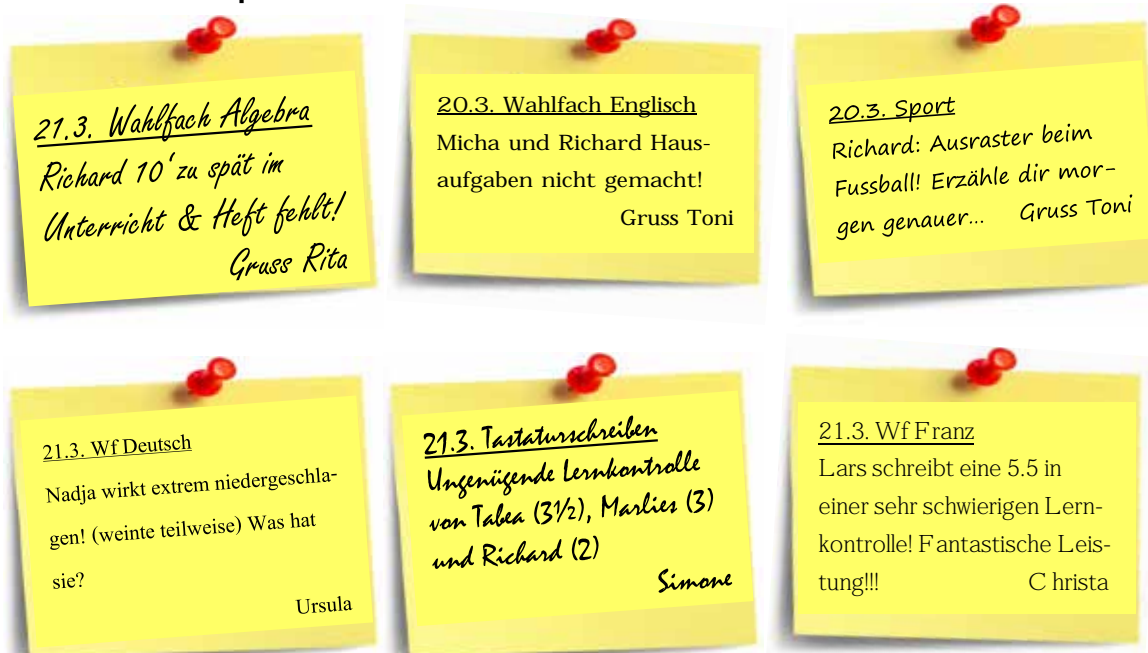 21.3. Wahlfach Algebra
Richard 10' zu spät im
Unterricht & Heft fehlt!
Gruss Rita
20.3. Wahlfach Englisch
Micha und Richard Haus-
aufgaben nicht gemacht!
Gruss Toni
20.3. Sport
Richard: Ausraster beim
Fussball! Erzähle dir mor-
gen genauer... Gruss Toni
21.3. Wf Deutsch
Nadja wirkt extrem niedergeschla-
gen! (weinte teilweise) Was hat
sie?
Ursula
21.3. Tastaturschreiben
Ungenügende Lernkontrolle
von Tabea (3½), Marlies (3)
und Richard (2)
Simone
21.3. Wf Franz
Lars schreibt eine 5.5 in
einer sehr schwierigen Lern-
kontrolle! Fantastische Leis-
tung!!! Christa